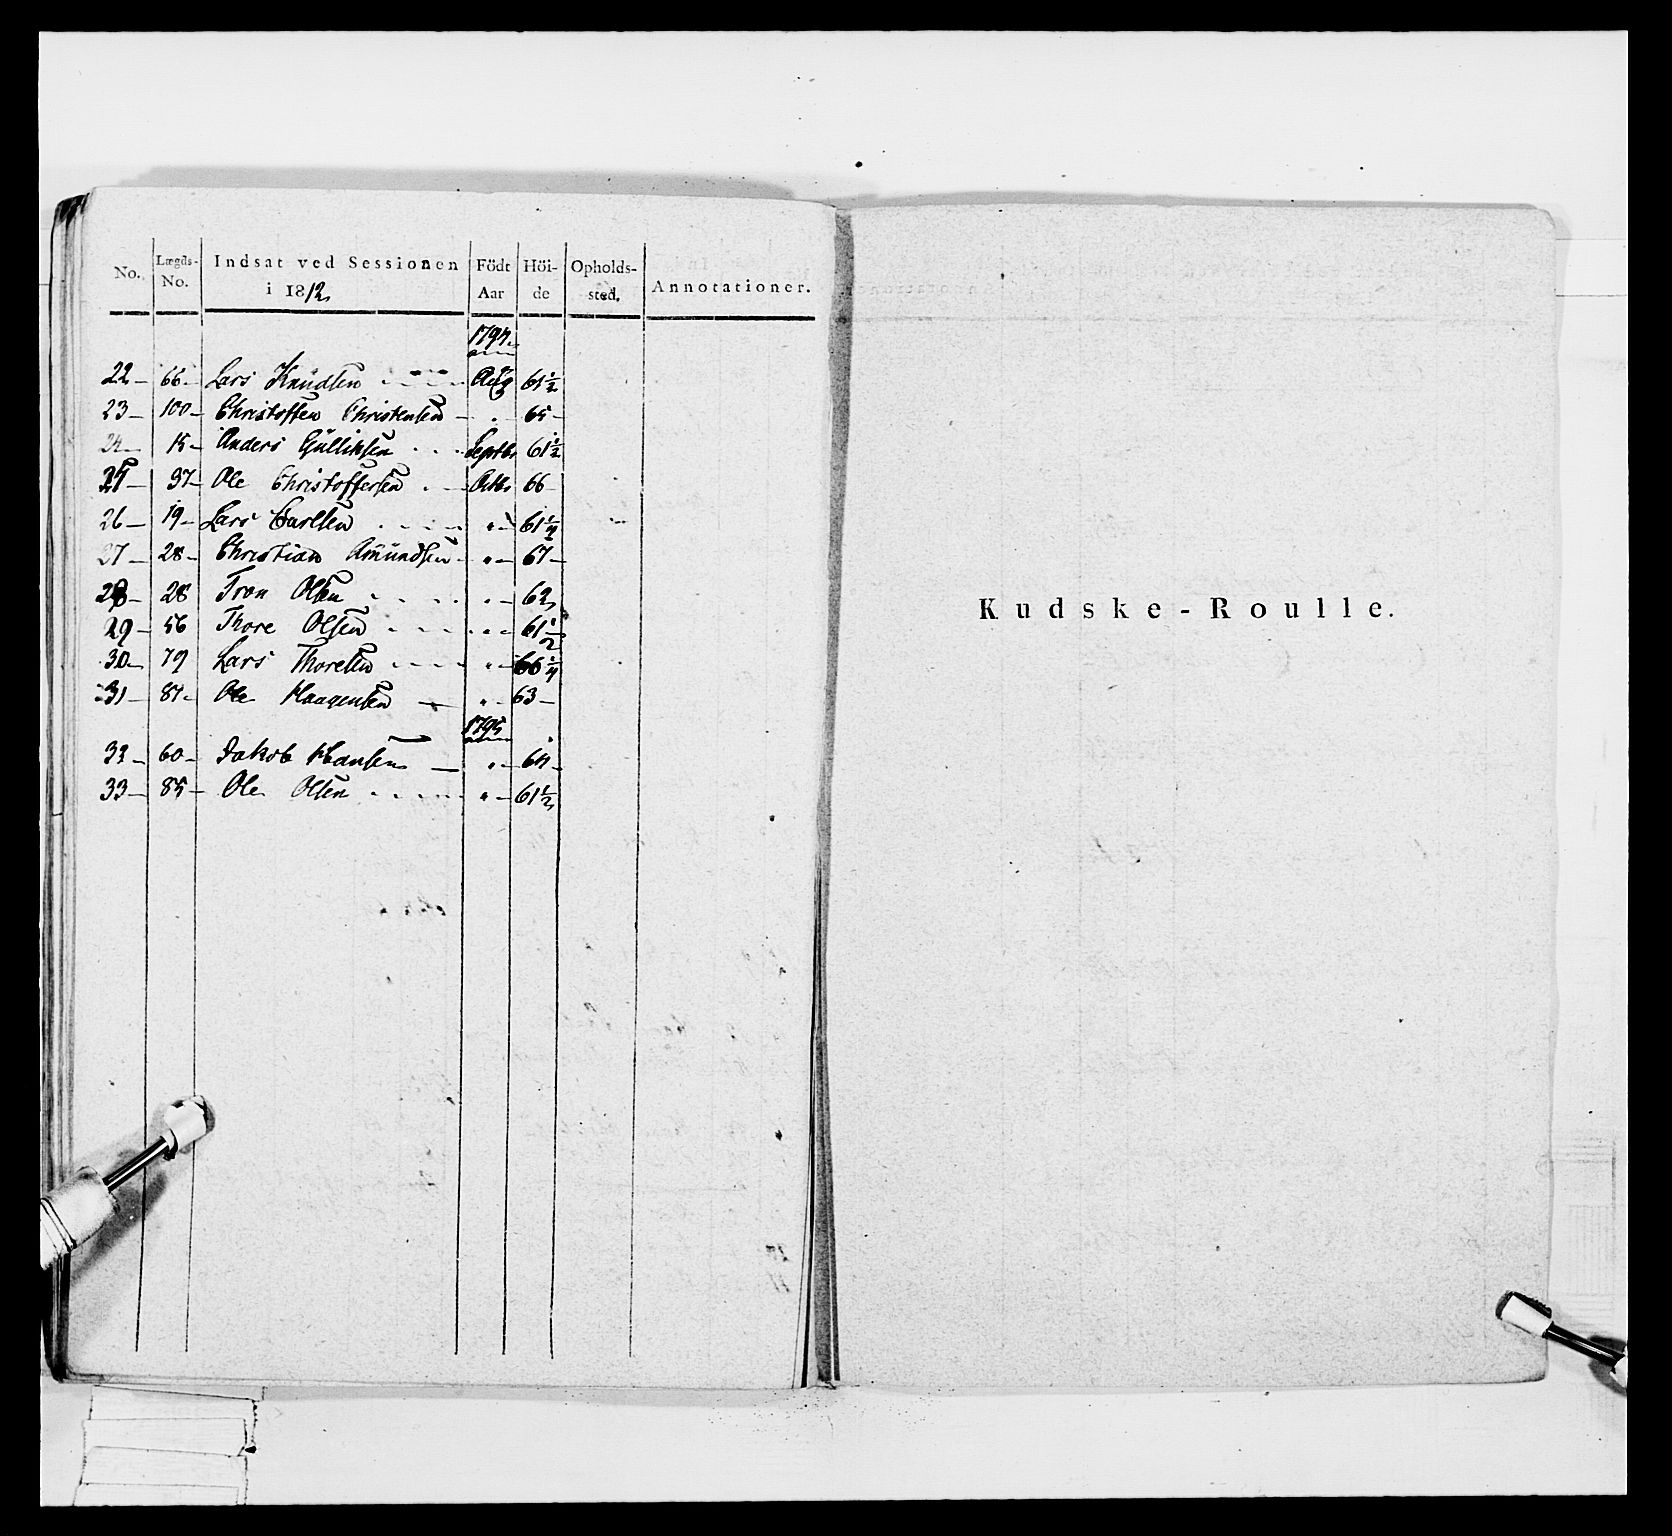 No. Lægds-No. Indsat ved Sessionen i 1812 Födt Aar Höi-de Opholds-sted. Annotationer.
1794
22 – 66 – Lars Knudsen Aug 61 1/2
23 – 100 – Christoffen Christensen – " 65 –
24 – 15 – Anders Gullichsen Septbr 61 1/2
25 – 37 – Ole Christoffersen Octbr 66 –
26 – 19 – Lars Carlsen " – 61 1/4
27 – 28 – Christian Amundsen – " – 67 –
28 – 28 Tron Olsen " – 62
29 – 56 Thore Olsen " – 61 1/2
30 – 79 Lars Thoresen " – 66 1/4
31 – 87 – Ole Haagensen – " – 63 –
1795
32 – 60 – Jakob Hansen – " – 64 –
33 – 85 – Ole Olsen " – 61 1/2
Kudske-Roulle.